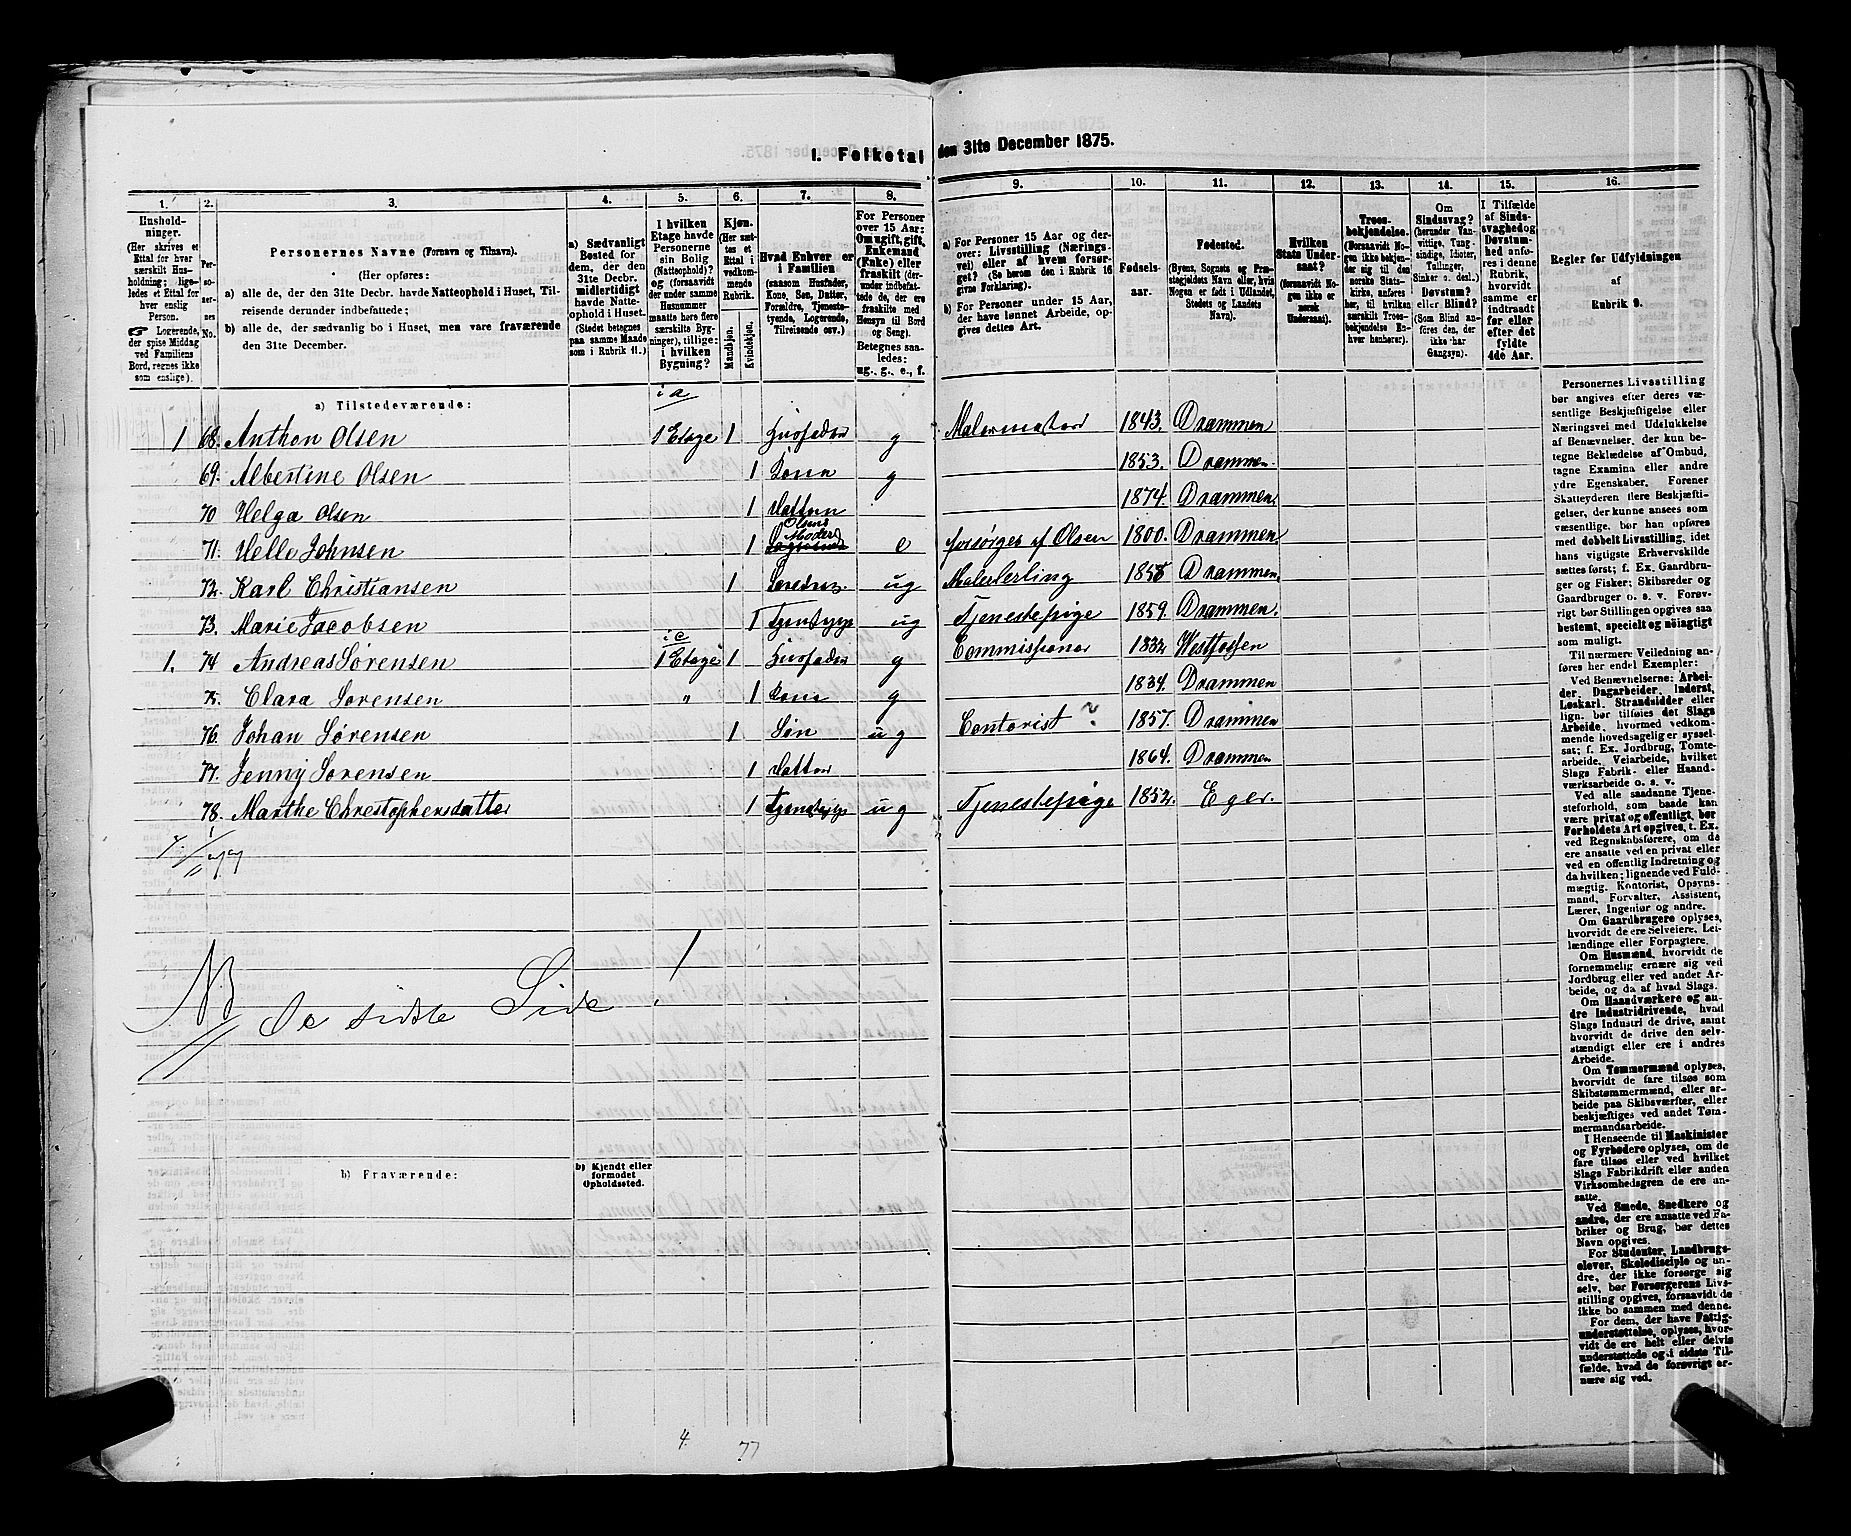 I. Folketal den 31te December 1875.
1. 2. 3. 4. 5. 6. 7. 8. 9. 10. 11. 12. 13. 14. 15. 16.
Hushold-
ninger.
(Her skrives et
Ettal for hver
særskilt Hus-
holdning; lige-
ledes et Ettal for
hver enslig
Person.
☞ Logerende,
der spise Middag
ved Familiens
Bord, regnes ikke
som enslige).
Per-
so-
ner-
nes
No.
Personernes Navne (Fornavn og Tilnavn).
(Her opføres:
a) alle de, der den 31te Decbr. havde Natteophold i Huset, Til-
reisende derunder indbefattede;
b) alle de, der sædvanlig bo i Huset, men vare fraværende
den 31te December.
a) Sædvanligt
Bosted for
dem, der den
31te Decbr.
midlertidigt
havde Natte-
ophold i Huset.
(Stedet betegnes
paa samme Maade
som i Rubrik 11.)
I hvilken
Etage havde
Personerne
sin Bolig
(Natteophold)?
og (forsaavidt
der under samme
Husnummer
maatte høre flere
særskilte Byg-
ninger), tillige:
i hvilken
Bygning?
Kjøn.
(Her sæt-
tes et
Ettal i
vedkom-
mende
Rubrik.
Mandkjøn.
Kvindekjøn.
Hvad Enhver er
i Familien
(saasom Husfader,
Kone, Søn, Datter,
Forældre, Tjeneste-
tyende, Logerende,
Tilreisende osv.)
For Personer
over 15 Aar:
Om ugift, gift,
Enkemand
(Enke) eller
fraskilt (der-
under indbefat-
tede de, der ere
fraskilte med
Hensyn til Bord
og Seng).
Betegnes saa-
ledes:
ug., g., e., f.
a) For Personer 15 Aar og der-
over: Livsstilling (Nærings-
vei) eller af hvem forsør-
get? (Se herom den i Rubrik 16
givne Forklaring).
b) For Personer under 15 Aar,
der have lønnet Arbeide, op-
gives dettes Art.
Fødsels-
aar.
Fødested.
(Byens, Sognets og Præ-
stegjeldets Navn eller, hvis
Nogen er født i Udlandet,
Stedets og Landets
Navn).
Hvilken
Stats Under-
saat?
(forsaavidt No-
gen ikke er
norsk
Undersaat).
Troes-
bekjendelse.
(forsaavidt No-
gen ikke hører
sig til den
norske Stats-
kirke, anføres
her, til hvilken
særskilt Troes-
bekjendelse En-
hver henhører).
Om
Sindssvag?
(herunder Van-
vittige, Tung-
sindige, Idioter,
Tullinger,
Sinker o. desl.)
Døvstum?
eller Blind?
(Som Blind an-
føres den, der
ikke har
Gangsyn).
I Tilfælde
af Sinds-
svaghed og
Døvstum-
hed anfø-
res i denne
Rubrik,
hvorvidt
samme er
indtraadt
før eller
efter det
fyldte
4de Aar.
Regler for Udfyldningen
af
Rubrik 9.
a) Tilstedeværende:
i a
1 68. Anthon Olsen 1 Etage 1 Husfader g Malermester 1843. Drammen
69. Albertine Olsen 1 Kone g 1853. Drammen.
70 Helga Olsen 1 Datter 1874. Drammen.
71. Helle Johnsen 1 Olsens Moder e forsørges af Olsen 1800. Drammen.
72. Karl Christiansen 1 ug Malerlerling 1858 Drammen.
73. Marie Jacobsen 1 ug Tjenestepige 1859. Drammen.
i c
1. 74 Andreas Sørensen 1 Etage 1 Husfader g Commissionær 1832 Westfossen
75. Clara Sørensen " 1 Kone g 1834. Drammen
76. Johan Sørensen 1 Søn ug Contorist ? 1857. Drammen
77. Jenny Sørensen 1 Datter 1864. Drammen
78. Marthe Christophersdatter 1 ug Tjenestepige 1852. Eger.
NB De sidste Side !
b) Fraværende:
b) Kjendt eller
formodet
Opholdssted.
Personernes Livsstilling
bør angives efter deres væ-
sentlige Beskjæftigelse eller
Næringsvei med Udelukkelse
af Benævnelser, der kun be-
tegne Beklædelse af Ombud,
tagne Examina eller andre
ydre Egenskaber. Forener
Skatteyderen flere Beskjæfti-
gelser, der kunne ansees som
væsentlige, bør han opføres
med dobbelt Livsstilling, idet
hans vigtigste Erhvervskilde
sættes først; f. Ex. Gaardbru-
ger og Fisker; Skibsreder og
Gaardbruger o. s. v. Forøv-
rigt bør Stillingen opgives saa
bestemt, specielt og nöiagtigt
som muligt.
Til nærmere Veiledning an-
føres her endel Exempler:
Ved Benævnelserne: Arbei-
der, Dagarbeider, Inderst,
Løskarl, Strandsidder eller
lign. bør tilføies det Slags
Arbeide, hvormed vedkom-
mende hovedsagelig er syssel-
sat; f. Ex. Jordbrug, Tomte-
arbeide, Veiarbeide, hvilket
Slags Fabrik- eller Haand-
værksarbeide o. s. v.
Ved alle saadanne Tjene-
steforhold, som baade kan
være privat og offentligt, bør
Forholdets Art opgives, t. Ex.
ved Regnskabsførere, om de
ere ansatte ved en privat eller
ved en offentlig Indretning og
da hvilken; lignende ved Fuld-
mægtig, Kontorist, Opsyns-
mand, Forvalter, Assistent,
Lærer, Ingeniør og andre.
Om Gaardbrugere oplyses,
hvorvidt de ere Selveiere, Lei-
lændinge eller Forpagtere.
Om Husmænd, hvorvidt de
fornemmelig ernære sig ved
Jordbrug eller ved andet Ar-
beide, og da af hvad Slags.
Om Haandværkere og an-
dre Industridrivende, hvad
Slags Industri de drive, samt
hvorvidt de drive den selv-
stændigt eller ere i andres
Arbeide.
Om Tømmermænd oplyses,
hvorvidt de fare tilsøs som
Skibstømmermænd, eller ar-
beide paa Skibsværfter, eller
beskjæftiges ved andet Tøm-
mermandsarbeide.
I Henseende til Maskinister
og Fyrbødere oplyses, om de
fare tilsøs eller ved hvilket
Slags Fabrikdrift eller anden
Virksomhedsgren de ere an-
satte.
Ved Smede, Snedkere og
andre, der ere ansatte ved Fa-
briker og Brug, bør dettes
Navn opgives.
For Studenter, Landbrugs-
elever, Skoledisciple og an-
dre, der ikke forsørge sig
selv, bør Forsørgerens Livs-
stilling opgives, forsaavidt de
ikke bo sammen med denne.
For dem, der have Fattig-
understøttelse, oplyses, hvor-
vidt de ere helt eller delvis
understøttede og i sidste Til-
fælde, hvad de forøvrigt er-
nære sig ved.
4. 77